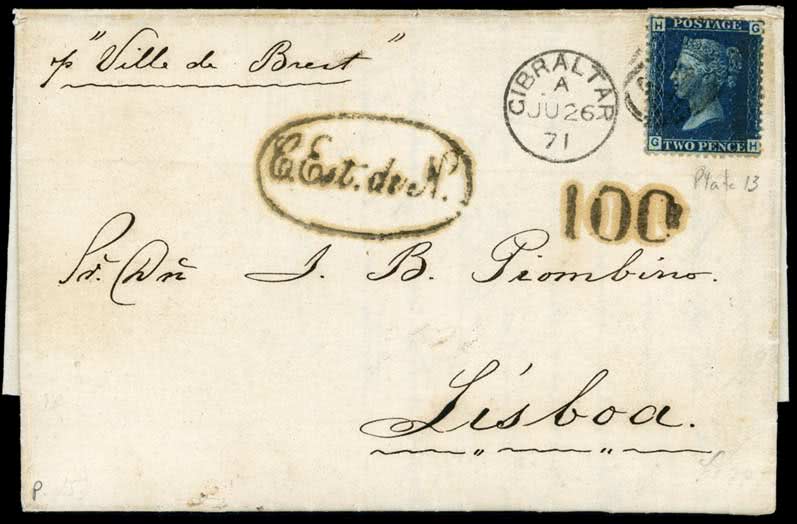 p "Ville de Brest"
GIBRALTAR
A
JU 26
71
H G
POSTAGE
TWO PENCE
G H
Plate 13
C. Est. de N.
100
Sr. Dn J. B. Piombino.
Lisboa.
P.